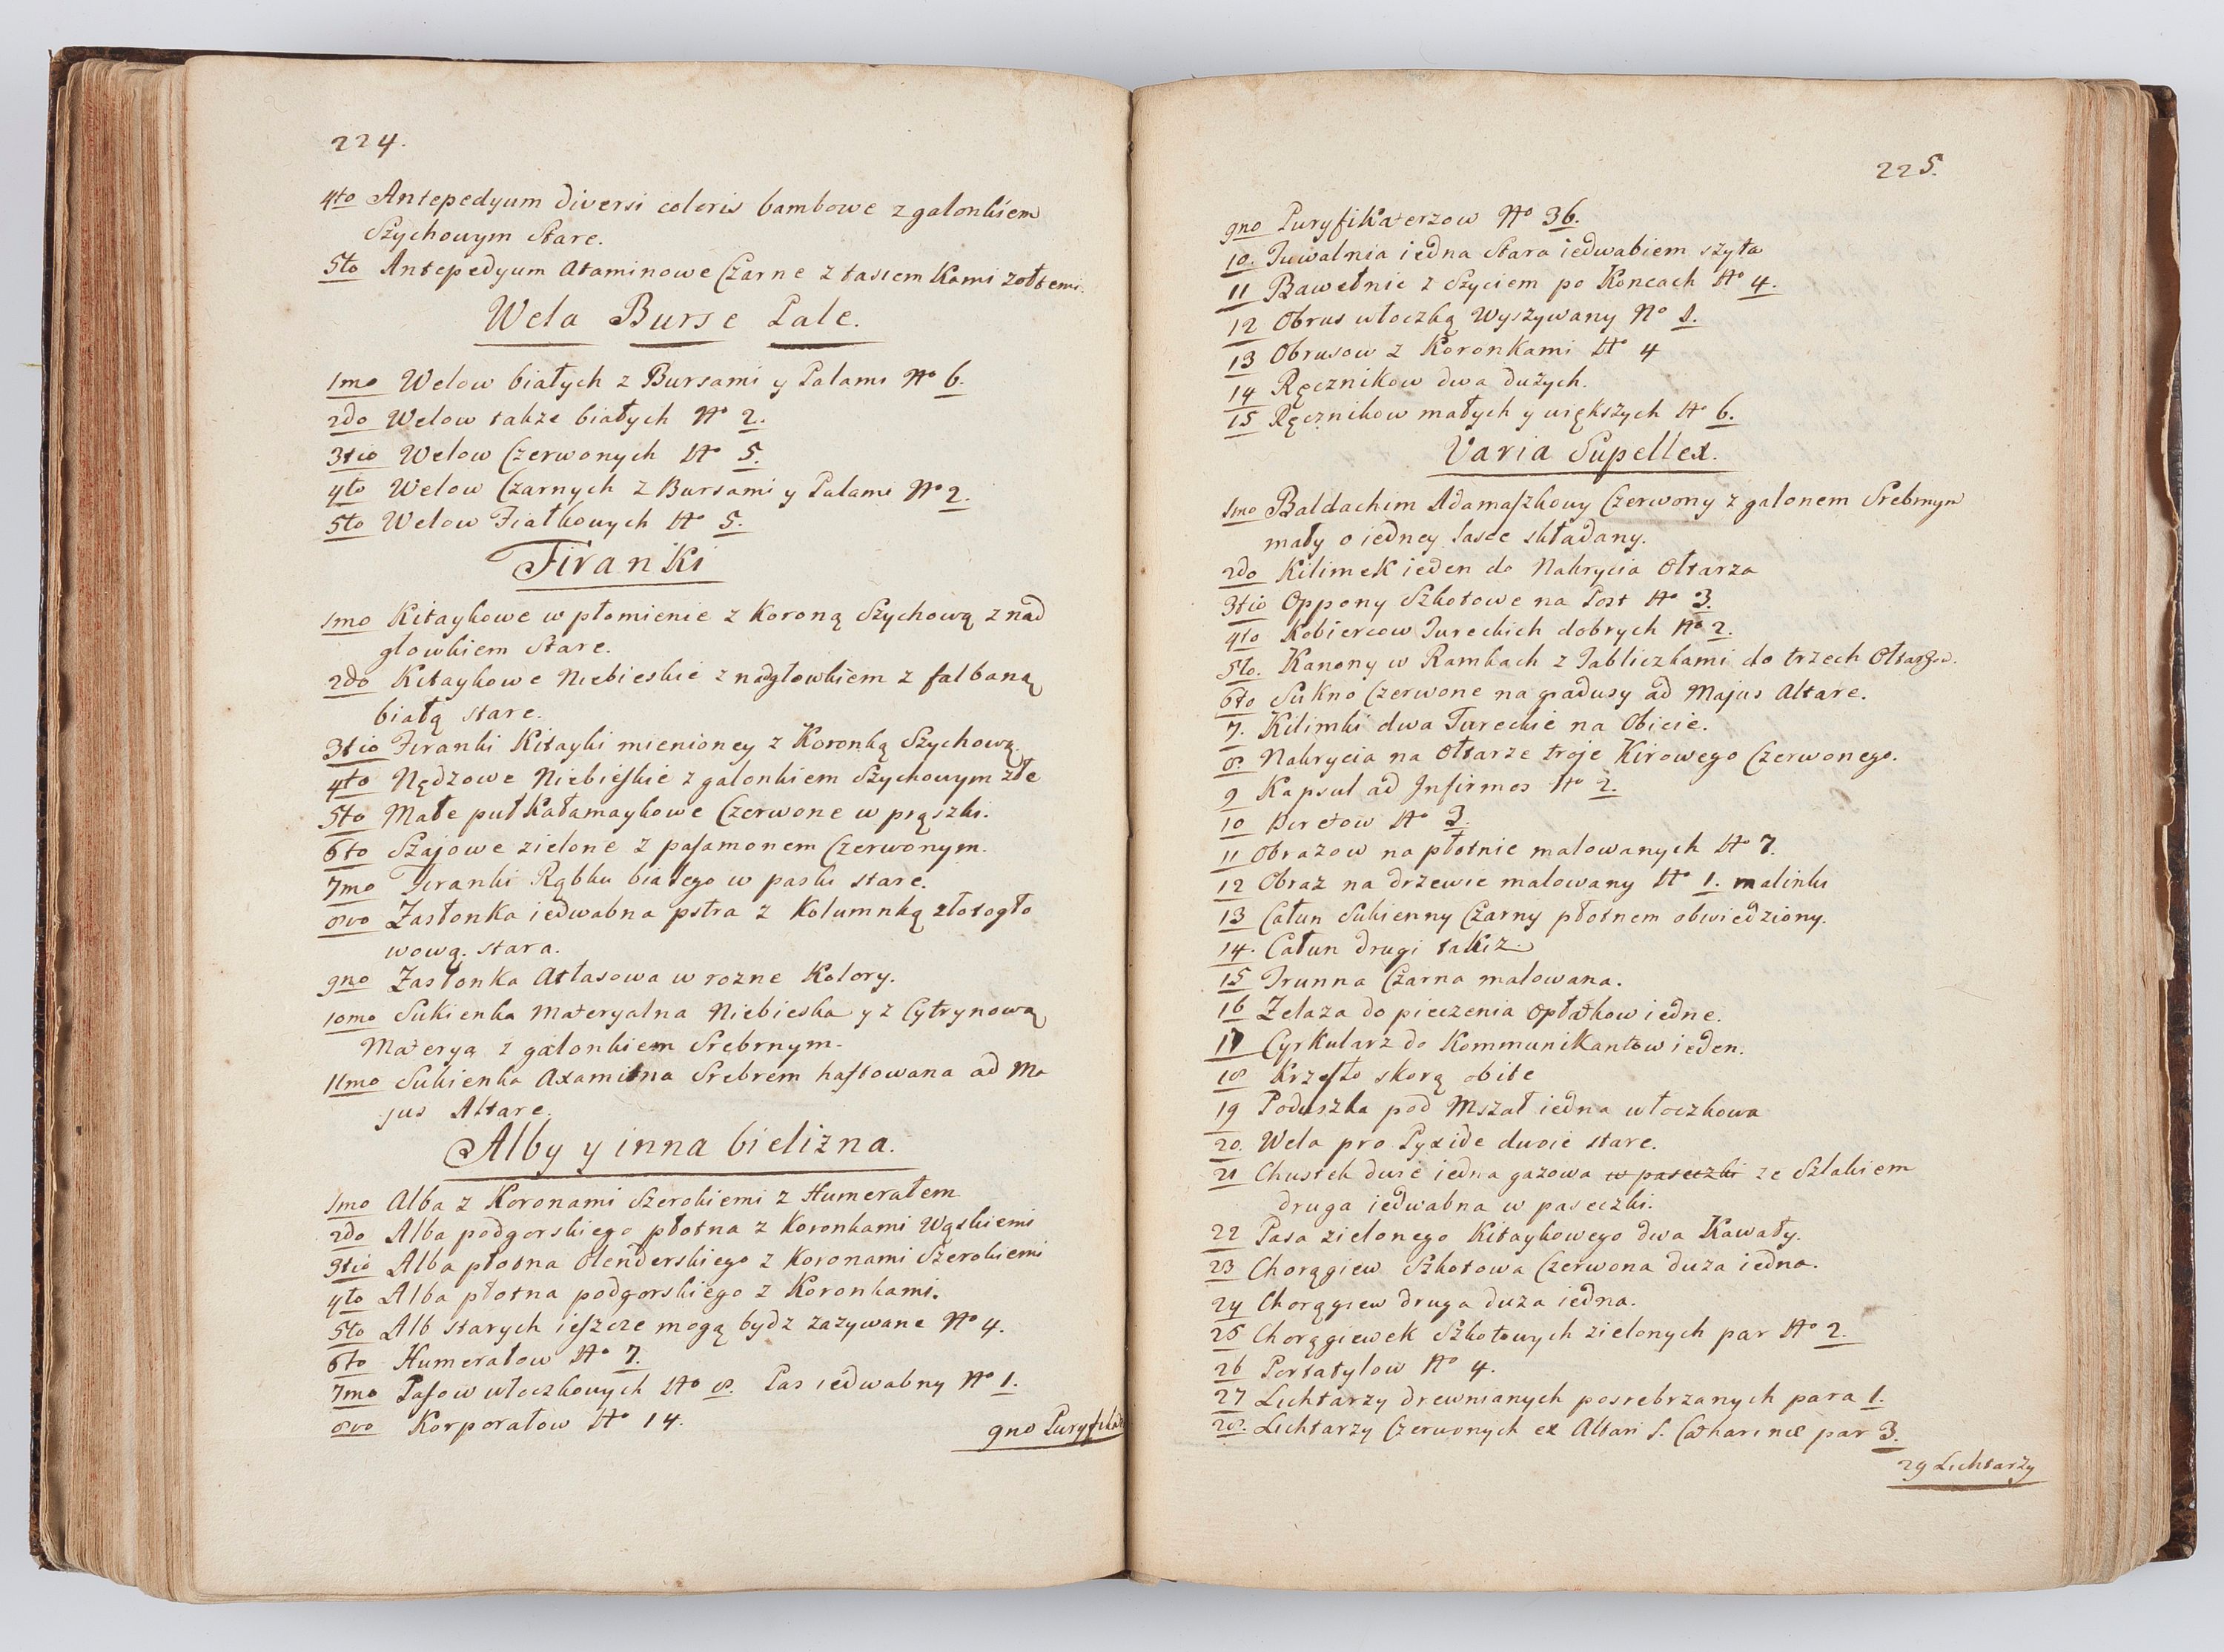 224.
4to Antepedyum diversi coloris bambowe z galonkiem
Szychowym Stare.
5to Antepedyum Ataminowe Czarne z tasiemkami zołtemi.
Wela Burse Pale.
1mo Welow białych z Bursami y Palami No 6.
2do Welow takze białych No 2.
3tio Welow Czerwonych No 5.
4to Welow Czarnych z Bursami y Palami No 2.
5to Welow Fiałkowych No 5.
Firanki
1mo Kitaykowe w płomienie z Koroną Szychową z nad
głowkiem Stare.
2do Kitaykowe Niebieskie z nadgłowkiem z falbaną
białą stare.
3tio Firanki Kitayki mienioney z Koronką Szychową.
4to Nędzowe Niebieskie z galonkiem Szychowym złe
5to Małe puł Kałamaykowe Czerwone w prąszki.
6to Szajowe zielone z pasamonem Czerwonym.
7mo Firanki Rąbku białego w paski stare.
8vo Zasłonka iedwabna pstra z Kolumnką złotogło
wową. stara.
9no Zasłonka Atłasowa w rozne Kolory.
10mo Sukienka Materyalna Niebieska y z Cytrynową
Materyą z galonkiem Srebrnym.
11mo Sukienka Axamitna Srebrem haftowana ad Ma
jus Altare.
Alby y inna bielizna.
1mo Alba z Koronami Szerokiemi z Humerałem
2do Alba podgorskiego płotna z Koronkami Wąskiemi
3tio Alba płotna Olenderskiego z Koronami Szerokiemi
4to Alba płotna podgorskiego z Koronkami.
5to Alb starych ieszcze mogą bydz zazywane No 4.
6to Humerałow No 7.
7mo Pasow włoczkowych No 8. Pas iedwabny No 1.
8vo Korporałow No 14.
9no Puryfika
225.
9no Puryfikaterzow No 36.
10. Tuwalnia iedna Stara iedwabiem szyta
11 Bawełnic z Szyciem po Koncach No 4.
12 Obrus włoczką Wyszywany No 1.
13 Obrusow z Koronkami No 4
14 Ręcznikow dwa dużych.
15 Ręcznikow małych y większych No 6.
Varia Supellex.
1mo Baldachim Adamaszkowy Czerwony z galonem Srebrnym
mały o iedney lasce składany.
2do Kilimek ieden do Nakrycia Ołtarza
3tio Oppony Szkotowe na Post No 3.
4to Kobiercow Tureckich dobrych No 2.
5to. Kanony w Ramkach z Tabliczkami do trzech Ołtarzow.
6to Sukno Czerwone na gradusy ad Majus Altare.
7. Kilimki dwa Tureckie na Obicie.
8. Nakrycia na Ołtarze troje Kirowego Czerwonego.
9 Kapsuł ad Infirmos No 2.
10 Biretow No 3.
11 Obrazow na płotnie malowanych No 7.
12 Obraz na drzewie malowany No 1. malinki
13 Całun Sukienny Czarny płotnem obwiedziony.
14. Całun drugi takiz.
15 Trunna Czarna malowana.
16 Zelaza do pieczenia Opłatkow iedne.
17 Cyrkularz do Kommunikantow ieden.
18 Krzesło skorą obite
19 Poduszka pod Mszał iedna włoczkowa
20. Wela pro Pyxide dwoie stare.
21 Chustek dwie iedna gazowa w paseczki ze Szlakiem
druga iedwabna w paseczki.
22 Pasa zielonego Kitaykowego dwa Kawały.
23 Chorągiew Szkotowa Czerwona duża iedna.
24 Chorągiew druga duza iedna.
25 Chorągiewek Szkotowych zielonych par No 2.
26 Portatylow No 4.
27 Lichtarzy drewnianych posrebrzanych para 1.
28. Lichtarzy Czerwonych ex Altari S. Catharinæ par 3.
29 Lichtarzy